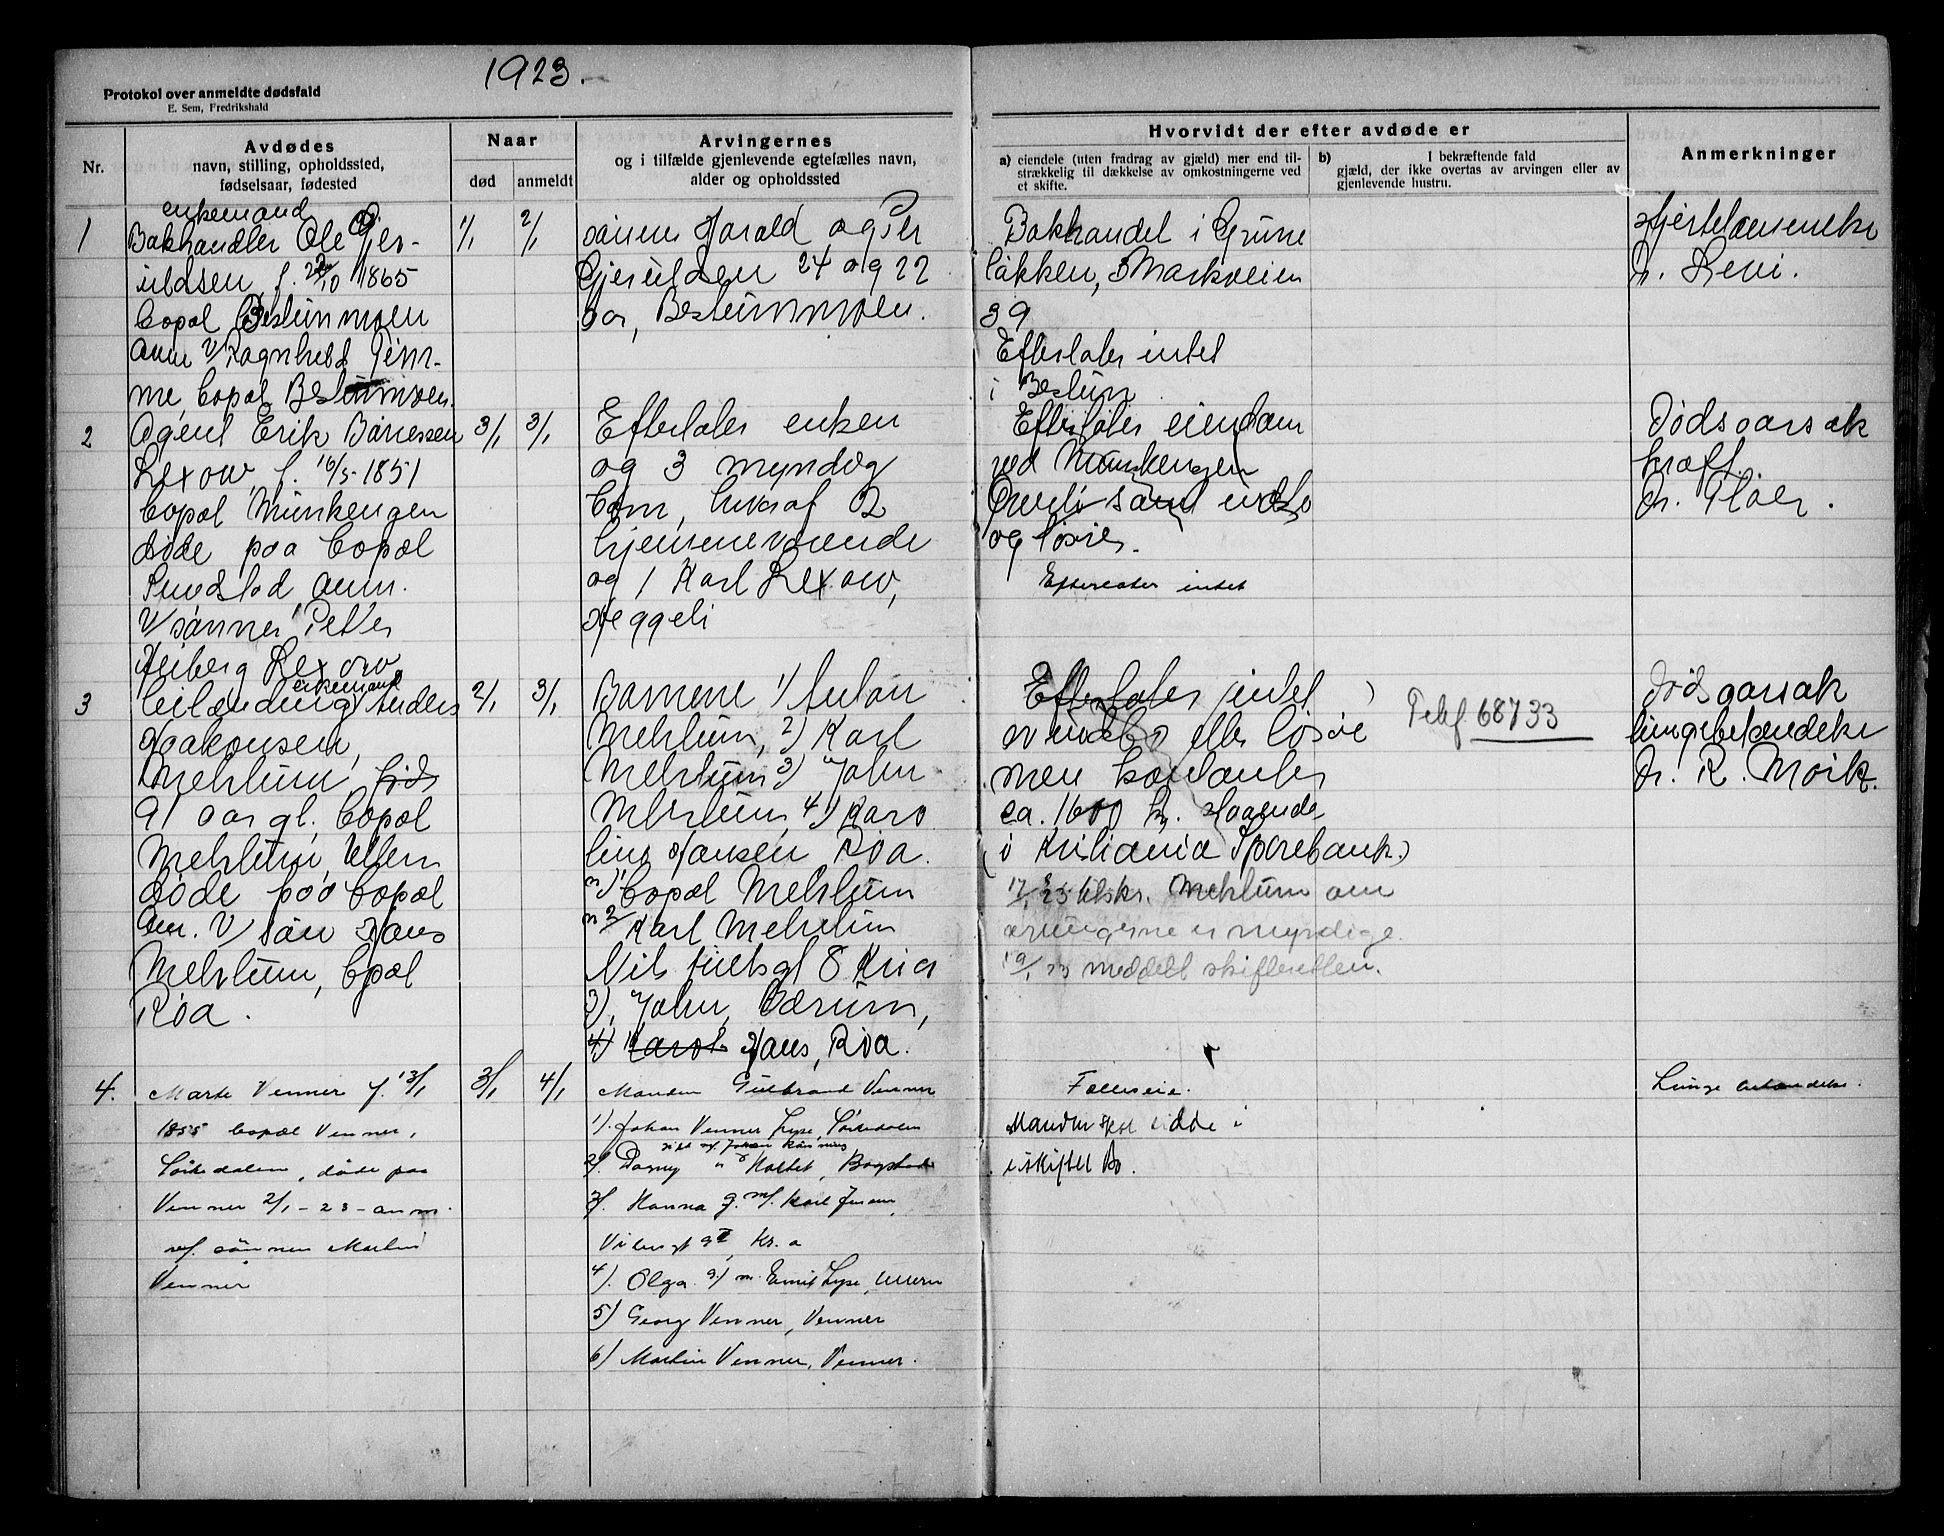 1923.
Protokol over anmeldte dødsfald
E. Sem, Fredrikshald
Nr.
Avdødes
navn, stilling, opholdssted,
fødselsaar, fødested
Naar
død
anmeldt
Arvingernes
og i tilfælde gjenlevende egtefælles navn,
alder og opholdssted
Hvorvidt der efter avdøde er
a) eiendele (uten fradrag av gjæld) mer end til-
strækkelig til dækkelse av omkostningerne ved
et skifte.
b) I bekræftende fald
gjæld, der ikke overtas av arvingen eller av
gjenlevende hustru.
Anmerkninger
1
enkemand
Bokhandler Ole Gjer-
uldsen, f. 22/10 1865
bopæl Bestummoen
anm v/ Ragnhild
me, bopæl Bestummoen.
1/1
2/1
sønnene Harald og Per
Gjeruldsen 24 og 22
aar, Bestummoen.
Bokhandel i Grüne
løkken, Markveien
39
Efterlater intet
i Bestum
Dr. Levi.
2
Agent Erik
Lexow, f. 16/5-1851
bopæl Munkengen
døde paa bopæl
anm.
v/ sønnen Petter
Heiberg Lexow
3/1
3/1
Efterlater enken
og 3 myndig
barn, hvorav 2
hjemmeværende
og 1 Karl Lexow,
Heggeli
Efterlater eiendom
ved Munkengen
samt indbo
og løsøre.
Efterlater intet
Dødsaarsak
kræft.
Dr.
3
enkemand
Anders
Haakonsen,
Mehlum, født
91 aar gl. bopæl
Mehlum, Ullern
døde paa bopæl
Anm. v/ søn Hans
Mehlum, bopæl
Røa.
2/1
3/1
Barnene 1) Anton
Mehlum, 2) Karl
Mehlum 3) John
Mehlum, 4) Karo
line Hansen Røa.
1) bopæl Mehlum
2/ Karl Mehlum
Nils Juelsgt 8 Kria
3), John, Bærum,
4) Karol Hans, Røa.
Efterlater intet
indbo eller løsøre
men kontanter
ca. 1600 kr. staaende
(i Kristiania Sparebank.)
17/1 23 tilskr. Mehlum om
arvingerne er myndige.
19/1 23 meddelt skifteretten.
Telf 68733
Dødsaarsak
lungebetændelse
Dr. R. Mork.
4.
Marte Venner f. 13/1
1855 bopæl Venner,
Sørkedalen, døde paa
Venner 2/1-23-anm.
v/ sønnen Martin
Venner
3/1
4/1
Manden Gulbrand Venner
1). Johan Venner Lyse, Sørkedalen
2/. Dagny Bogstad
3/. Hanna g. m/. Karl Jensen,
Kr. a
4). Olga g/ m. Emil Lyse, Ullern
5) Georg Venner, Venner
6) Martin Venner, Venner.
Fælleseie.
Manden skal sidde i
uskiftet bo.
Lunge betændelse.